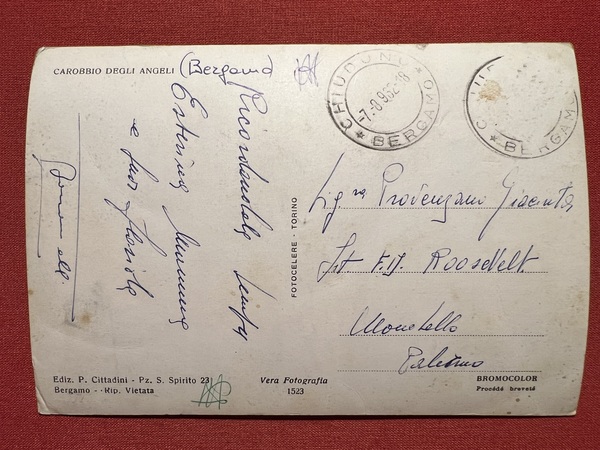 CAROBBIO DEGLI ANGELI (Bergamo)
Ricordandola sempre
Esterina Mamma
e fam.
CHIUDUNO
-7.-8.952-18
* BERGAMO *
C
* BERGAM
FOTOCELERE - TORINO
Sig.na Provenzano Giacinta
St F.D. Roosevelt
Palermo
Ediz. P. Cittadini - Pz. S. Spirito 23
Bergamo - Rip. Vietata
Vera Fotografia
1523
BROMOCOLOR
Procédé breveté